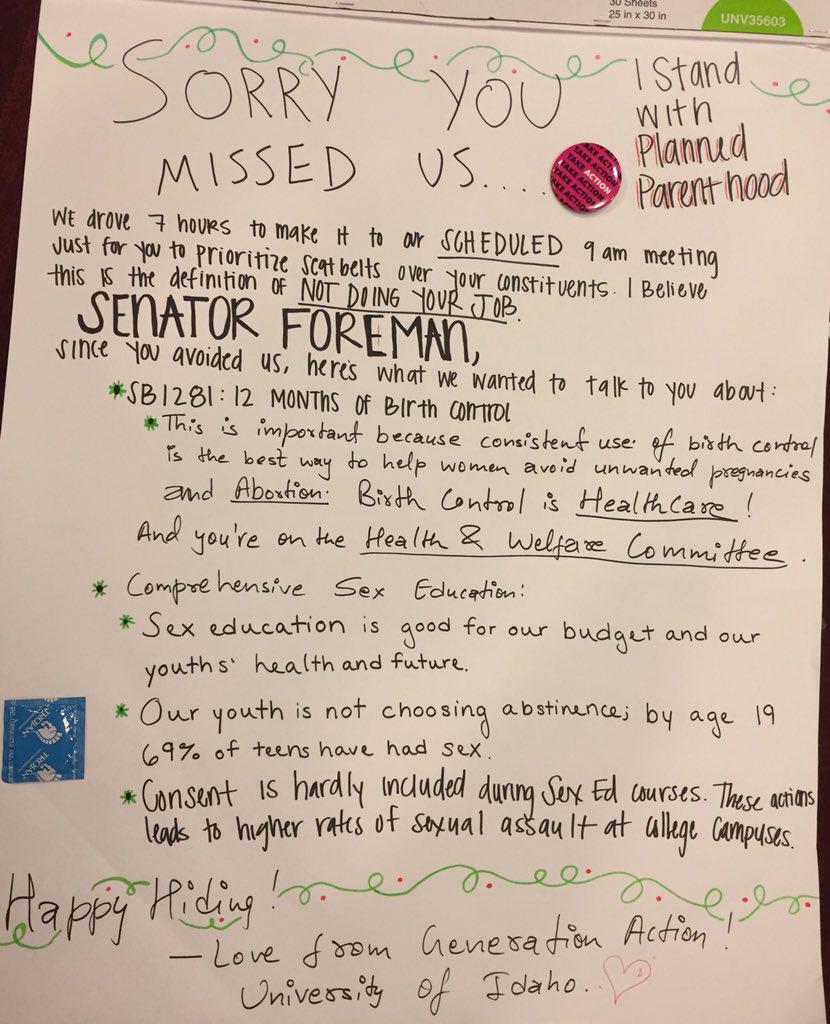 30 Sheets
25 in x 30 in
UNV35603
SORRY YOU
MISSED US....
I Stand
with
Planned
Parenthood
TAKE ACTION
TAKE ACTION
TAKE ACTION
WE drove 7 hours to make it to our SCHEDULED 9am meeting
Just for you to prioritize seatbelts over your constituents. I Believe
this is the definition of NOT DOING YOUR JOB.
SENATOR FOREMAN,
since you avoided us, here's what we wanted to talk to you about:
*SB1281: 12 MONTHS OF BIRTH CONTROL
*This is important because consistent use of birth control
is the best way to help women avoid unwanted pregnancies
and Abortion. Birth Control is HealthCare!
And you're on the Health & Welfare Committee.
* Comprehensive Sex Education:
* Sex education is good for our budget and our
youths' health and future.
* Our youth is not choosing abstinence; by age 19
69% of teens have had sex.
*Consent is hardly included during Sex Ed courses. These actions
leads to higher rates of sexual assault at college campuses.
TROJAN
TROJAN
Happy Hiding!
—Love from Generation Action!
University of Idaho.